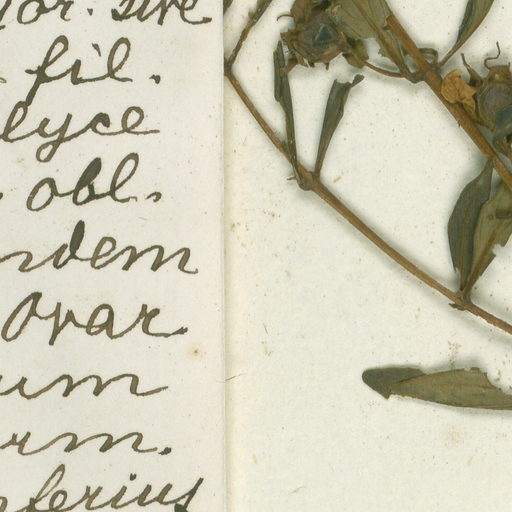 or. sive
fil.
lyce
obl.
ndem
Ovar
um
rm.
ferius